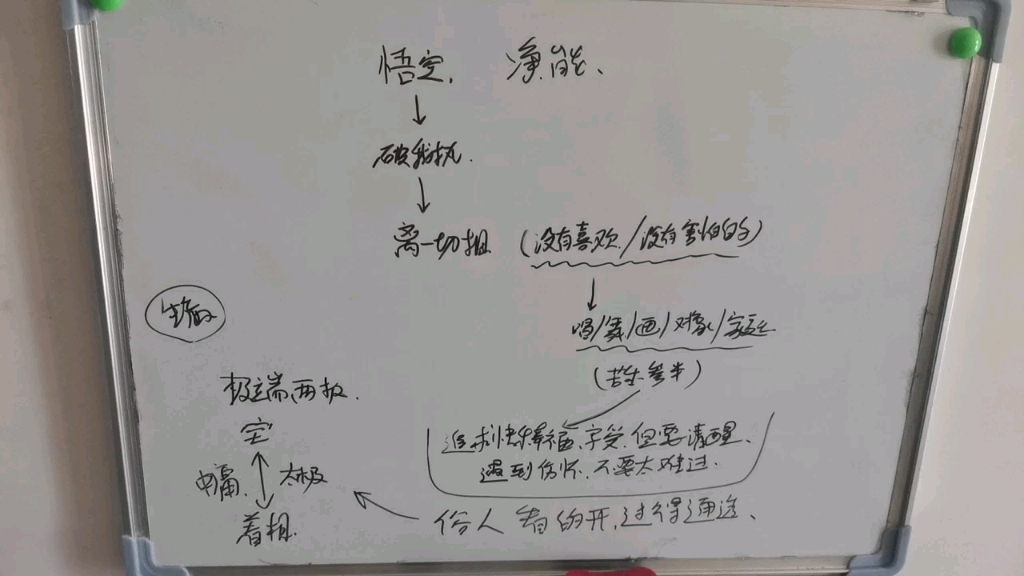 悟空、 净能、
破我执.
离一切相. (没有喜欢/没有害怕的)
唱/舞/画/对象/家庭
(苦乐参半)
追求快乐幸福,享受,但要清醒.
遇到伤怀.不要太难过.
俗人 看的开,过得通透、
极端两极.
空
中庸. 太极
着相.